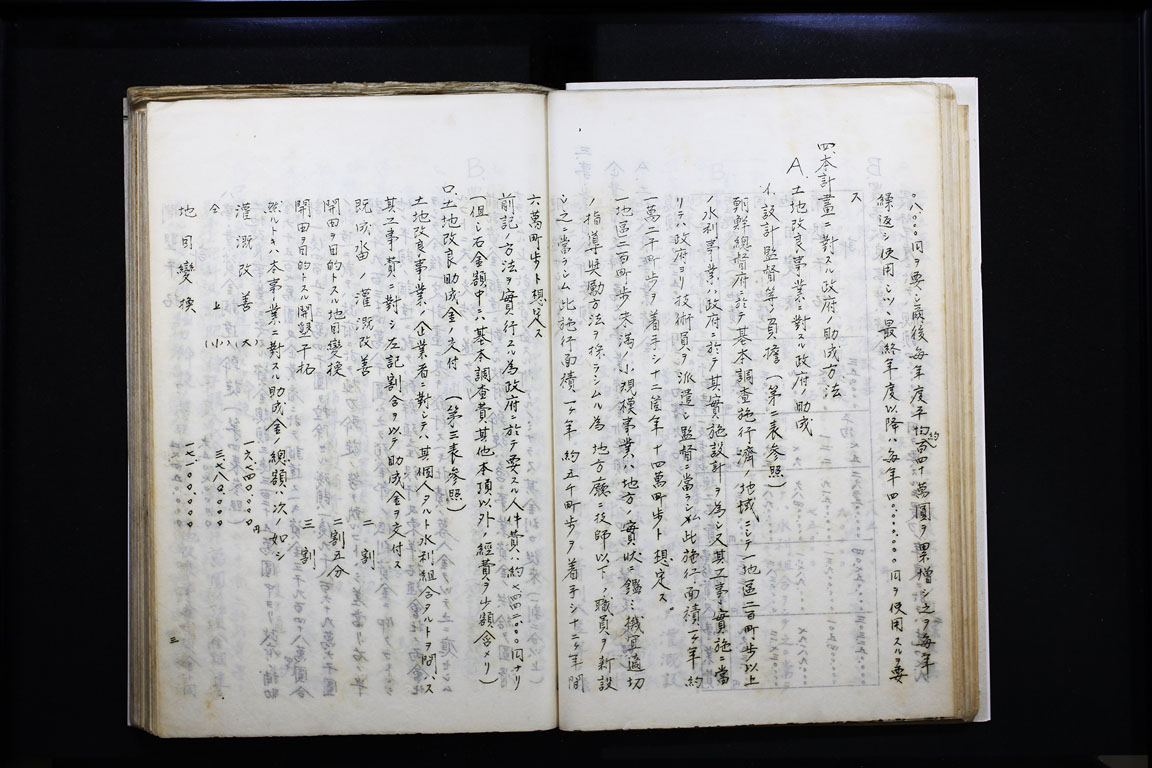 〇八〇〇〇円ヲ要シ前後毎年度平均約百四十萬圓ヲ累増シ之ヲ毎年
繰返シ使用シツヽ最終年度以降ハ毎年四〇〇〇〇〇〇円ヲ使用スルヲ要
ス
四、本計畫ニ對スル政府ノ助成方法
A. 土地改良事業ニ對スル政府ノ助成
イ、設計監督等ノ負擔 (第二表參照)
朝鮮總督府ニ於テ基本調査施行濟ノ地域ニシテ一地區二百町歩以上
ノ水利事業ハ政府ニ於テ其實施設計ヲ為シ又其工事ノ實施ニ當
リテハ政府ヨリ技術員ヲ派遣シ監督ニ當ラシム此施行面積一ケ年約
一萬二千町歩ヲ着手シ十二箇年十四萬町歩ト想定ス。
一地區二百町歩未滿ノ小規模事業ハ地方ノ實狀ニ鑑ミ機宜適切
ノ指導奬勵方法ヲ採ラシムル為地方廳ニ技師以下ノ職員ヲ新設
シ之ニ當ラシム此施行面積一ケ年約五千町歩ヲ着手シ十二ケ年間
六萬町歩ト想定ス
前記ノ方法ヲ實行スル為政府ニ於テ要スル人件費ハ約七四二〇〇〇円ナリ
(但シ右金額中ニハ基本調査費其他本項以外ノ經費ヲ少額含メリ)
ロ、土地改良助成金ノ交付 (第三表參照)
土地改良事業ノ企業者ニ對シテハ其個人タルト水利組合タルトヲ問ハス
其工事費ニ對シ左記割合ヲ以テ助成金ヲ交付ス
既成畓ノ灌漑改善 二割
開田ヲ目的トスル地目變換 二割五分
開田ヲ目的トスル開墾干拓 三割
然ルトキハ本事業ニ對スル助成金ノ總額ハ次ノ如シ
灌漑改善 (大) 一六七四〇〇〇〇円
仝上 (小) 三七八〇〇〇〇
地目變換 一七一〇〇〇〇〇
三